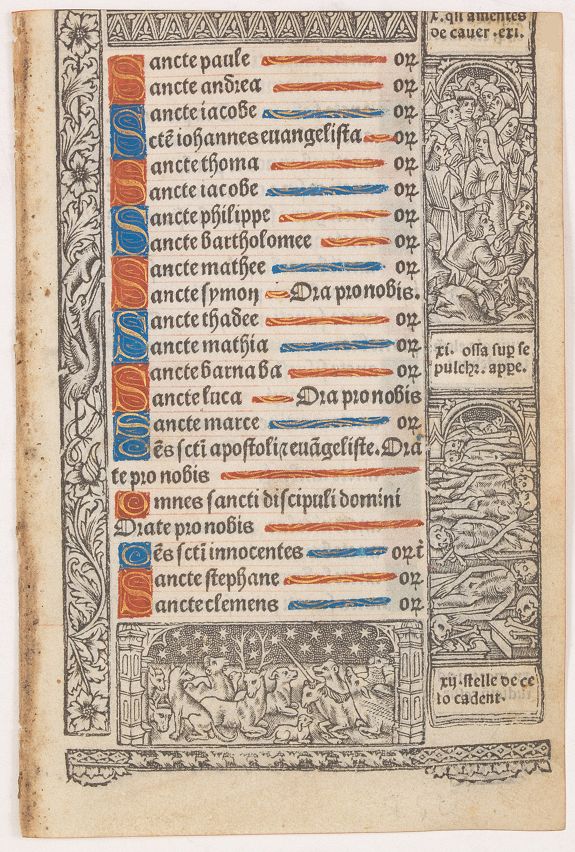 Sancte paule oꝝ
Sancte andrea oꝝ
Sancte iacobe oꝝ
Sctē iohannes euangelista oꝝ
Sancte thoma oꝝ
Sancte iacobe oꝝ
Sancte philippe oꝝ
Sancte bartholomee oꝝ
Sancte mathee oꝝ
Sancte symon Ora pro nobis.
Sancte thadee oꝝ
Sancte mathia oꝝ
Sancte barnaba oꝝ
Sancte luca Ora pro nobis
Sancte marce oꝝ
Oēs scti apostoli ⁊ euāgeliste. Ora
te pro nobis
Omnes sancti discipuli domini
Orate pro nobis
Oēs scti innocentes
Sancte stephane oꝝ
Sancte clemens oꝝ
de cauer .exi.
xi. ossa sup se
pulchr. appe.
xij. stelle de ce
lo cadent.